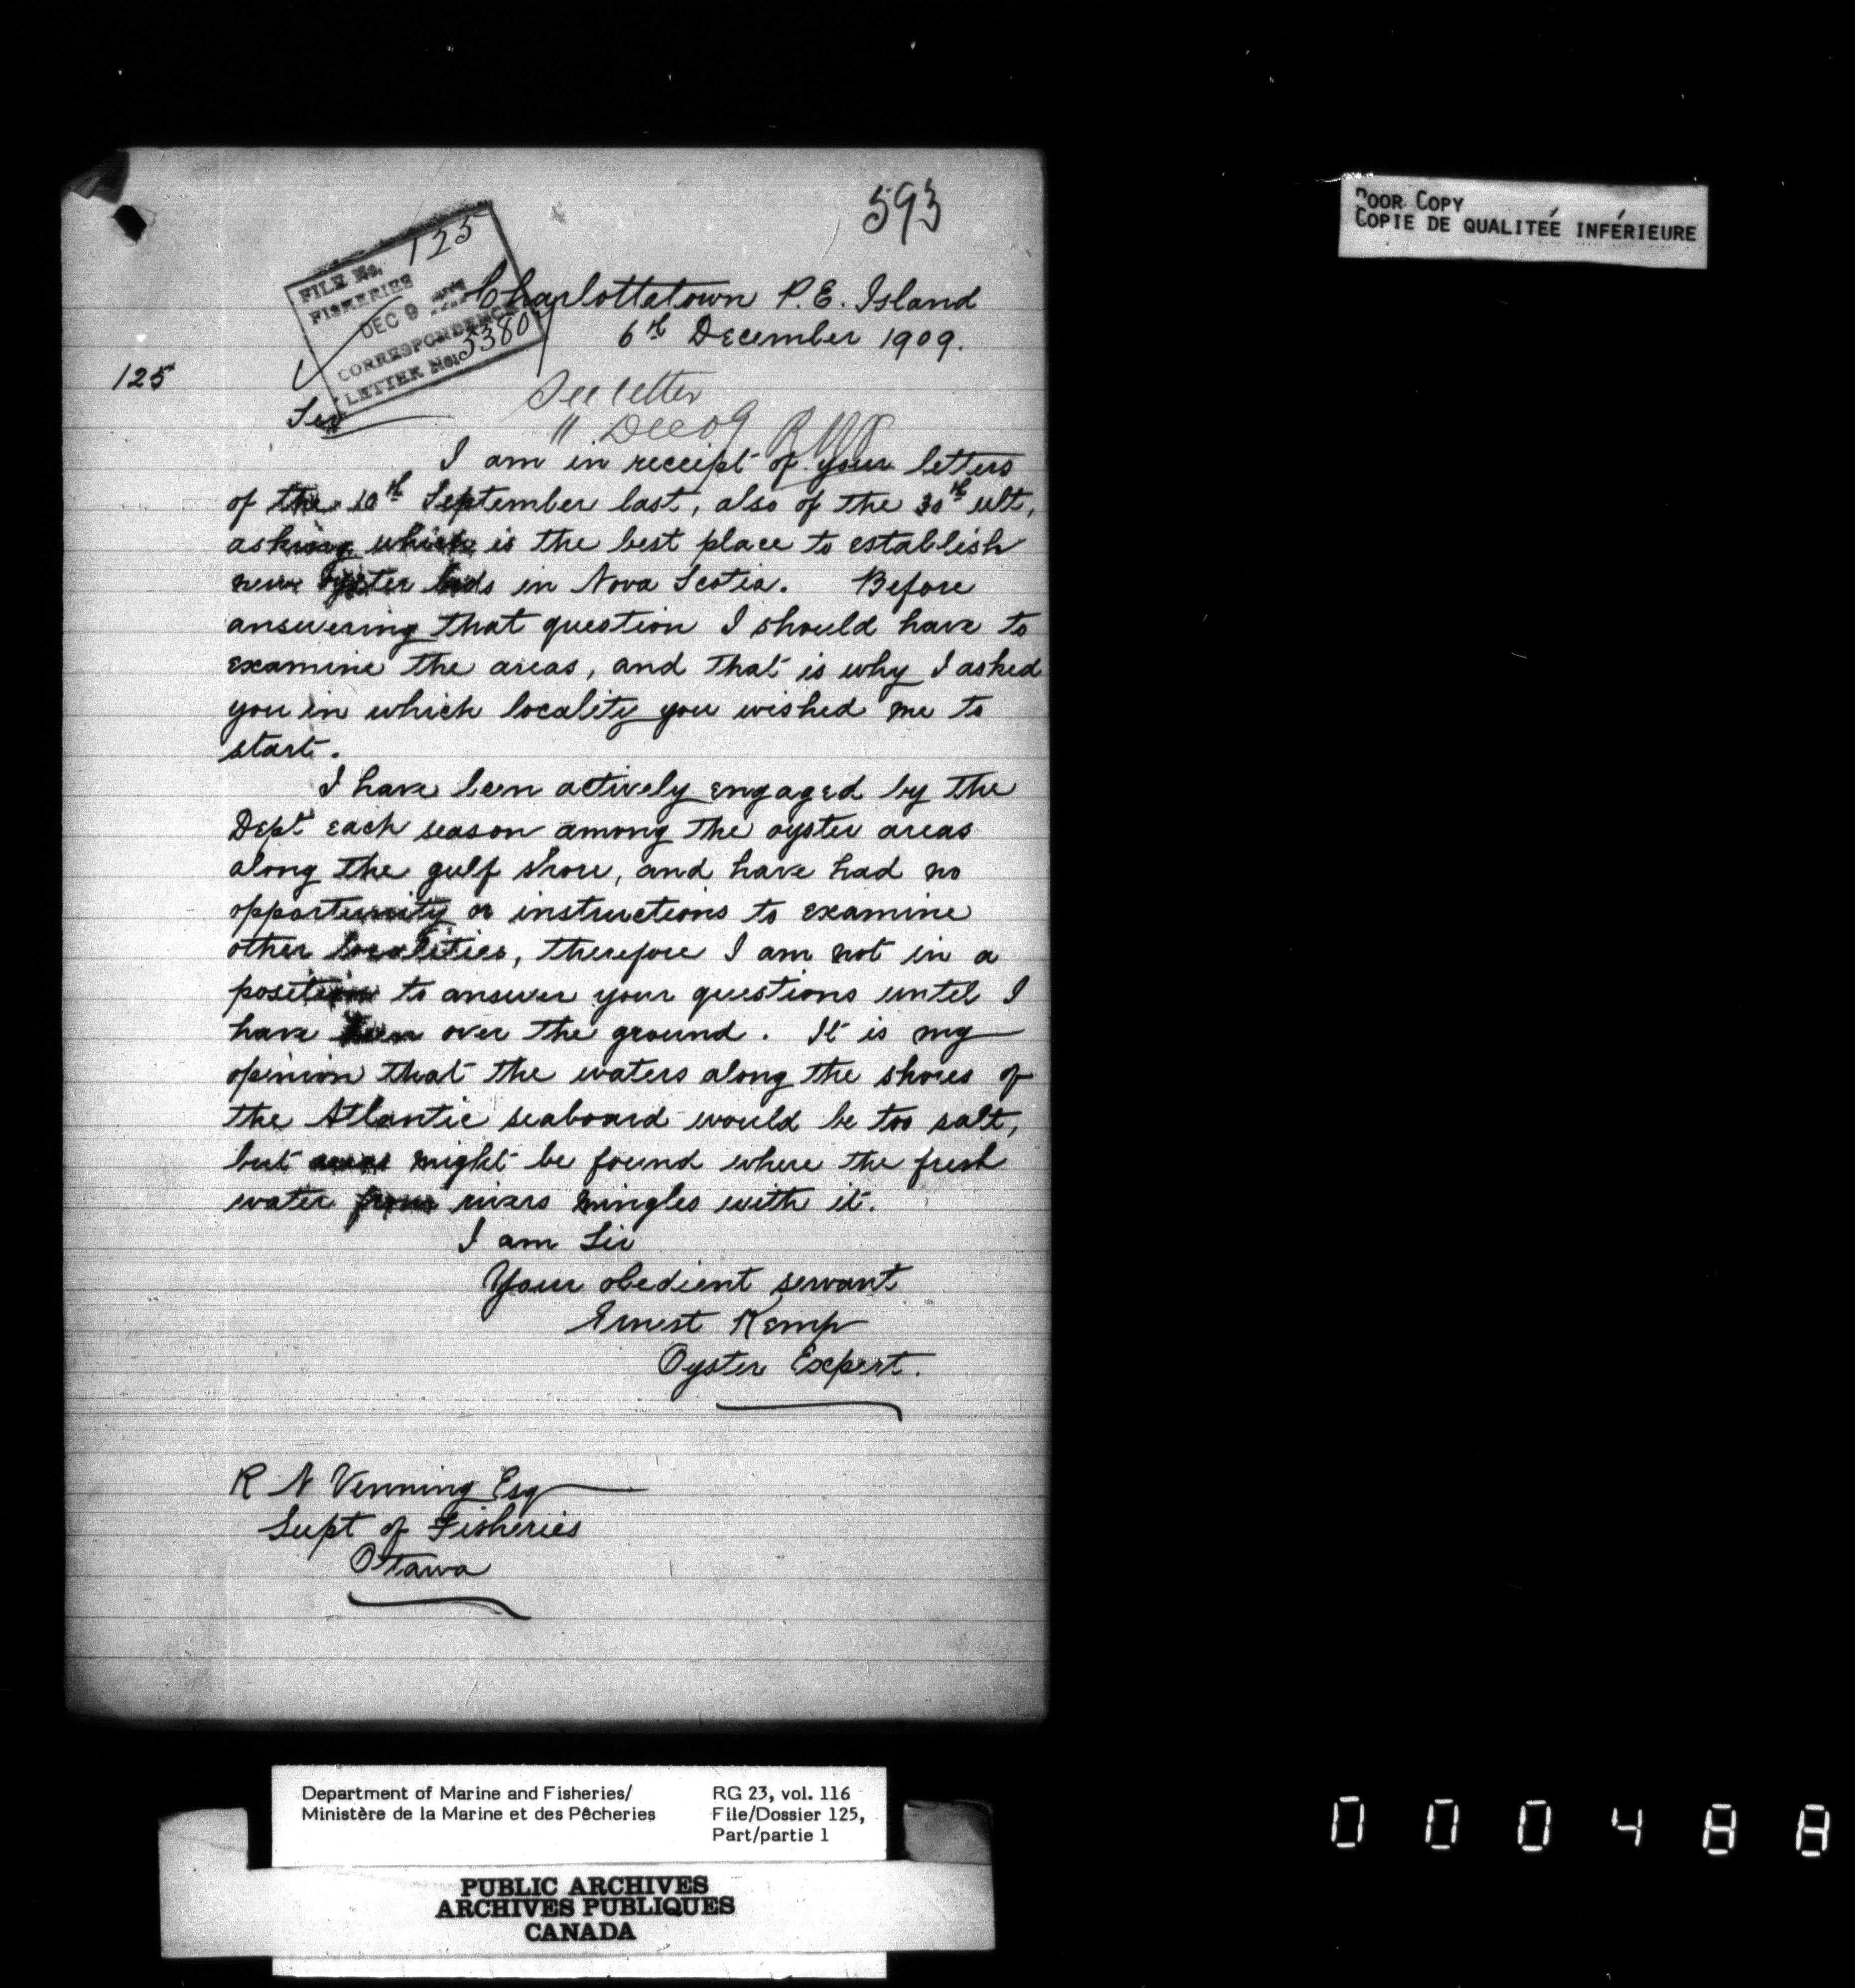 593
FILE No. 125
FISHERIES
DEC 9
CORRESPONDENCE
LETTER No. 5380
Charlottetown P.E. Island
6th December 1909.
125
See letter
11 Dec 09
Sir
I am in receipt of your letters
of the 10th September last, also of the 30th ult,
asking which is the best place to establish
new oyster beds in Nova Scotia. Before
answering that question I should have to
examine the areas, and that is why I asked
you in which locality you wished me to
start.
I have been actively engaged by the
Dept each season among the oyster areas
along the gulf shore, and have had no
opportunity or instructions to examine
other localities, therefore I am not in a
position to answer your questions until I
have been over the ground. It is my
opinion that the waters along the shores of
the Atlantic seaboard would be too salt,
but areas might be found where the fresh
water from rivers mingles with it.
I am Sir
Your obedient servant
Ernest Kemp
Oyster Expert.
R N Venning Esq
Supt of Fisheries
Ottawa
POOR COPY
COPIE DE QUALITEÉ INFÉRIEURE
Department of Marine and Fisheries/
Ministère de la Marine et des Pêcheries
RG 23, vol. 116
File/Dossier 125,
Part/partie 1
PUBLIC ARCHIVES
ARCHIVES PUBLIQUES
CANADA
000488